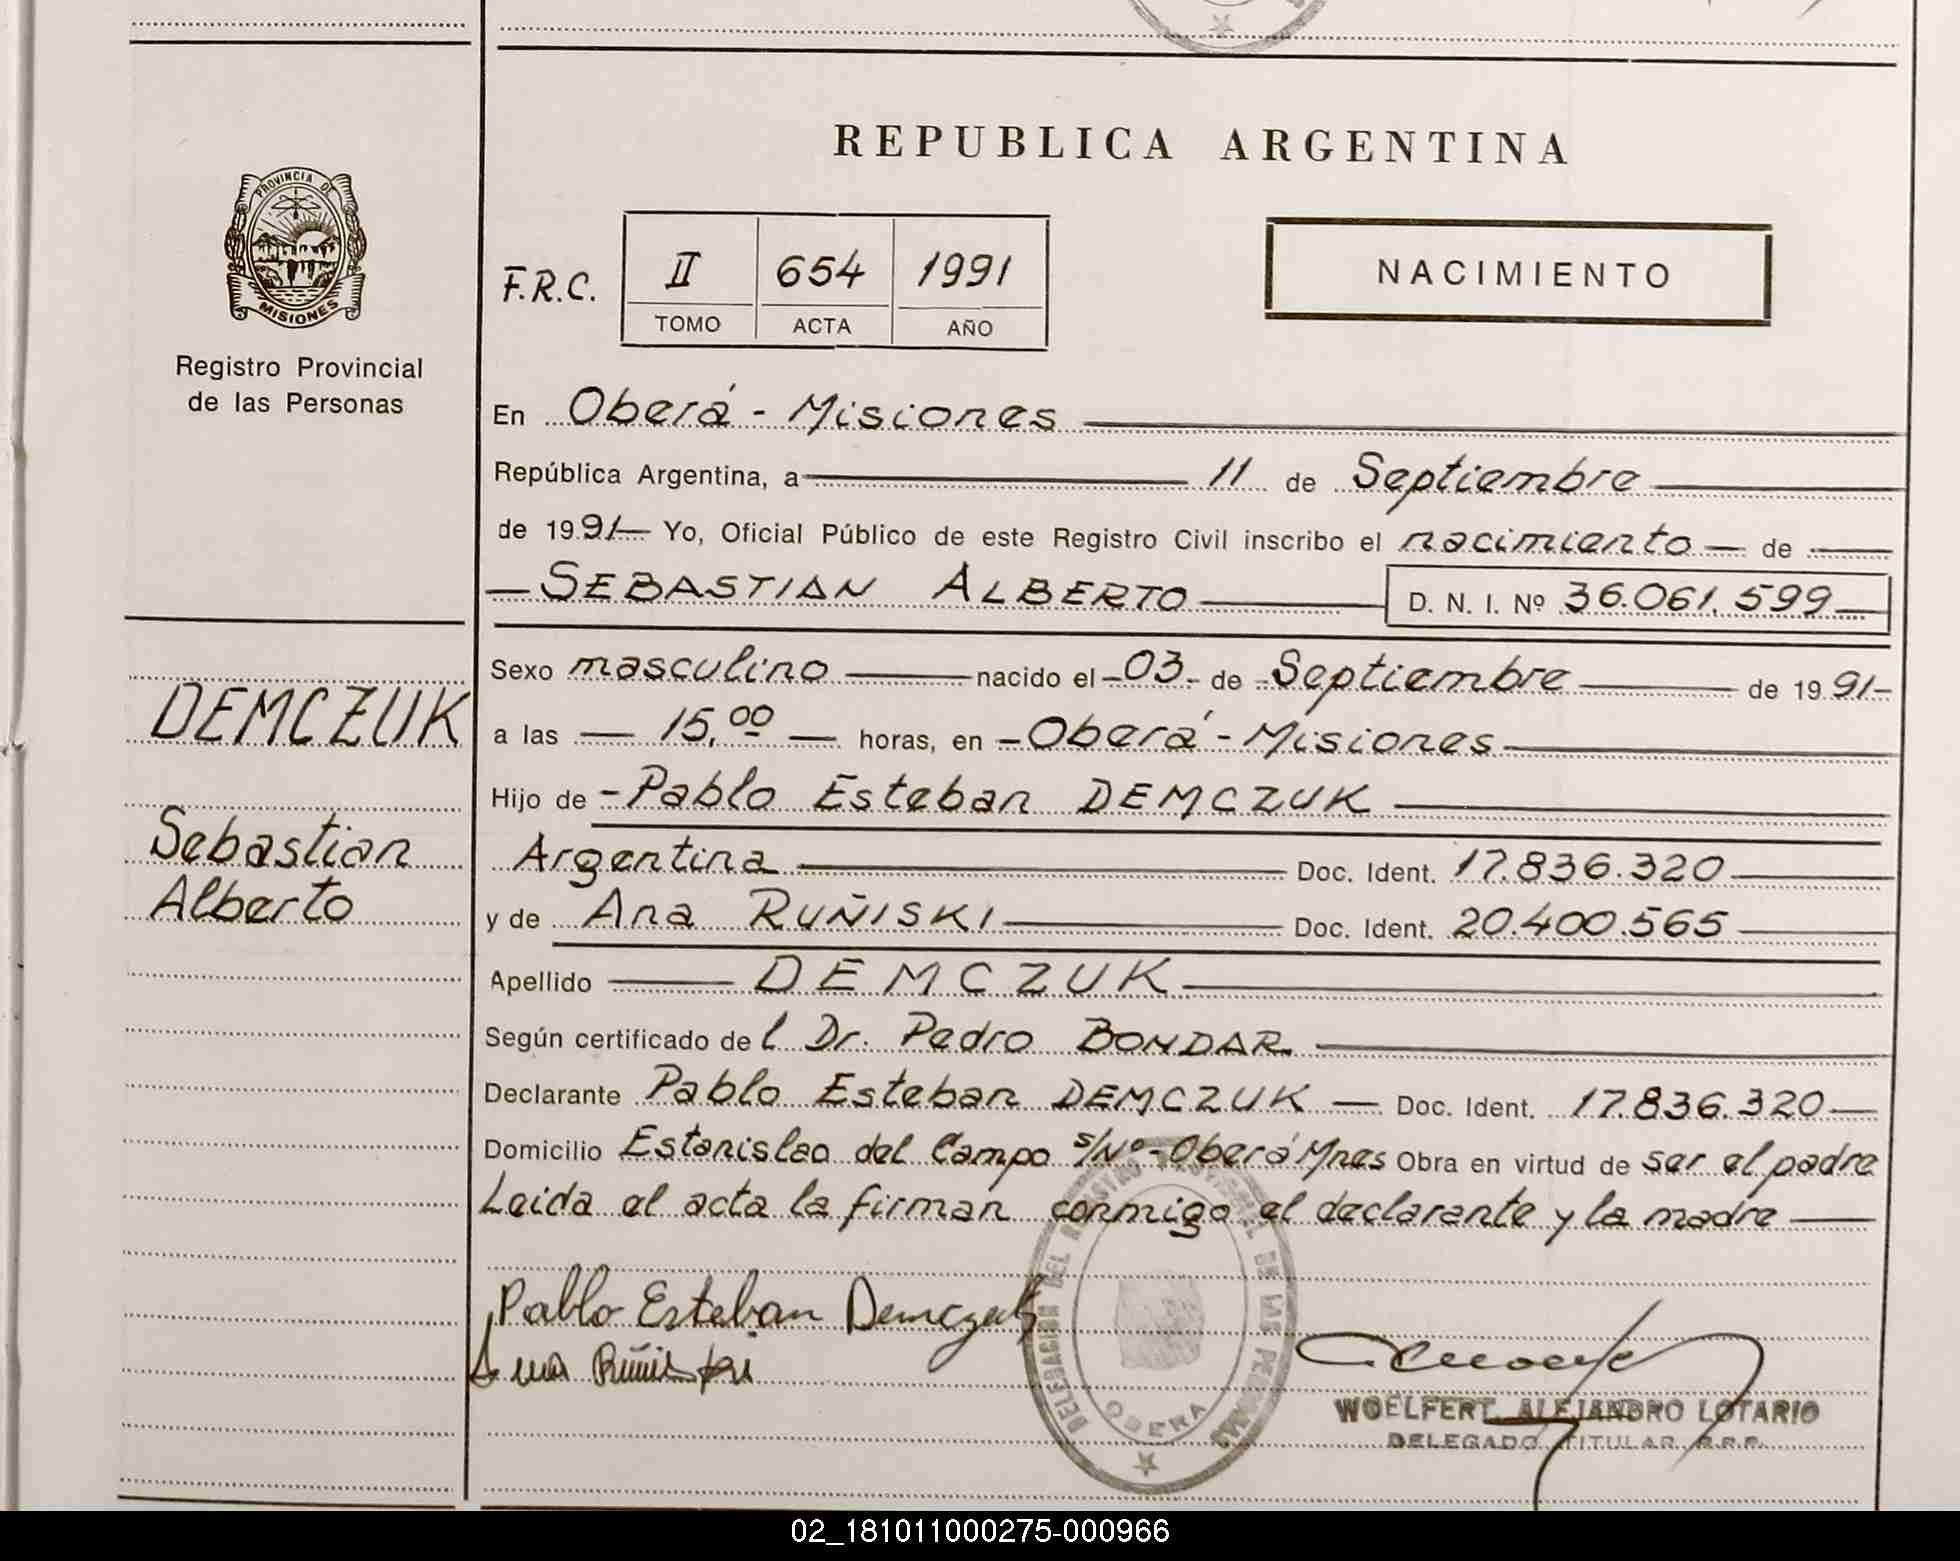 REPUBLICA ARGENTINA
PROVINCIA DE
MISIONES
Registro Provincial
de las Personas
F.R.C.
II 654 1991
TOMO ACTA AÑO
NACIMIENTO
En Oberá - Misiones
República Argentina, a 11 de Septiembre
de 1991 Yo, Oficial Público de este Registro Civil inscribo el nacimiento de
SEBASTIAN ALBERTO D. N. I. Nº 36.061.599
Sexo masculino nacido el 03 de Septiembre de 1991
a las 15,00 horas, en Oberá - Misiones
Hijo de Pablo Esteban DEMCZUK
Argentina Doc. Ident. 17.836.320
y de Ana RUÑISKI Doc. Ident. 20.400.565
Apellido DEMCZUK
Según certificado del Dr. Pedro BONDAR
Declarante Pablo Esteban DEMCZUK Doc. Ident. 17.836.320
Domicilio Estanislao del Campo s/Nº - Oberá Mnes Obra en virtud de ser el padre
Leida el acta la firman conmigo el declarante y la madre
DEMCZUK
Sebastian
Alberto
Pablo Esteban Demczuk
Ana Ruñiski
DELEGACION DEL REGISTRO PROVINCIAL DE LAS PERSONAS
OBERA
WOELFERT, ALEJANDRO LOTARIO
DELEGADO TITULAR R.P.P.
02_181011000275-000966